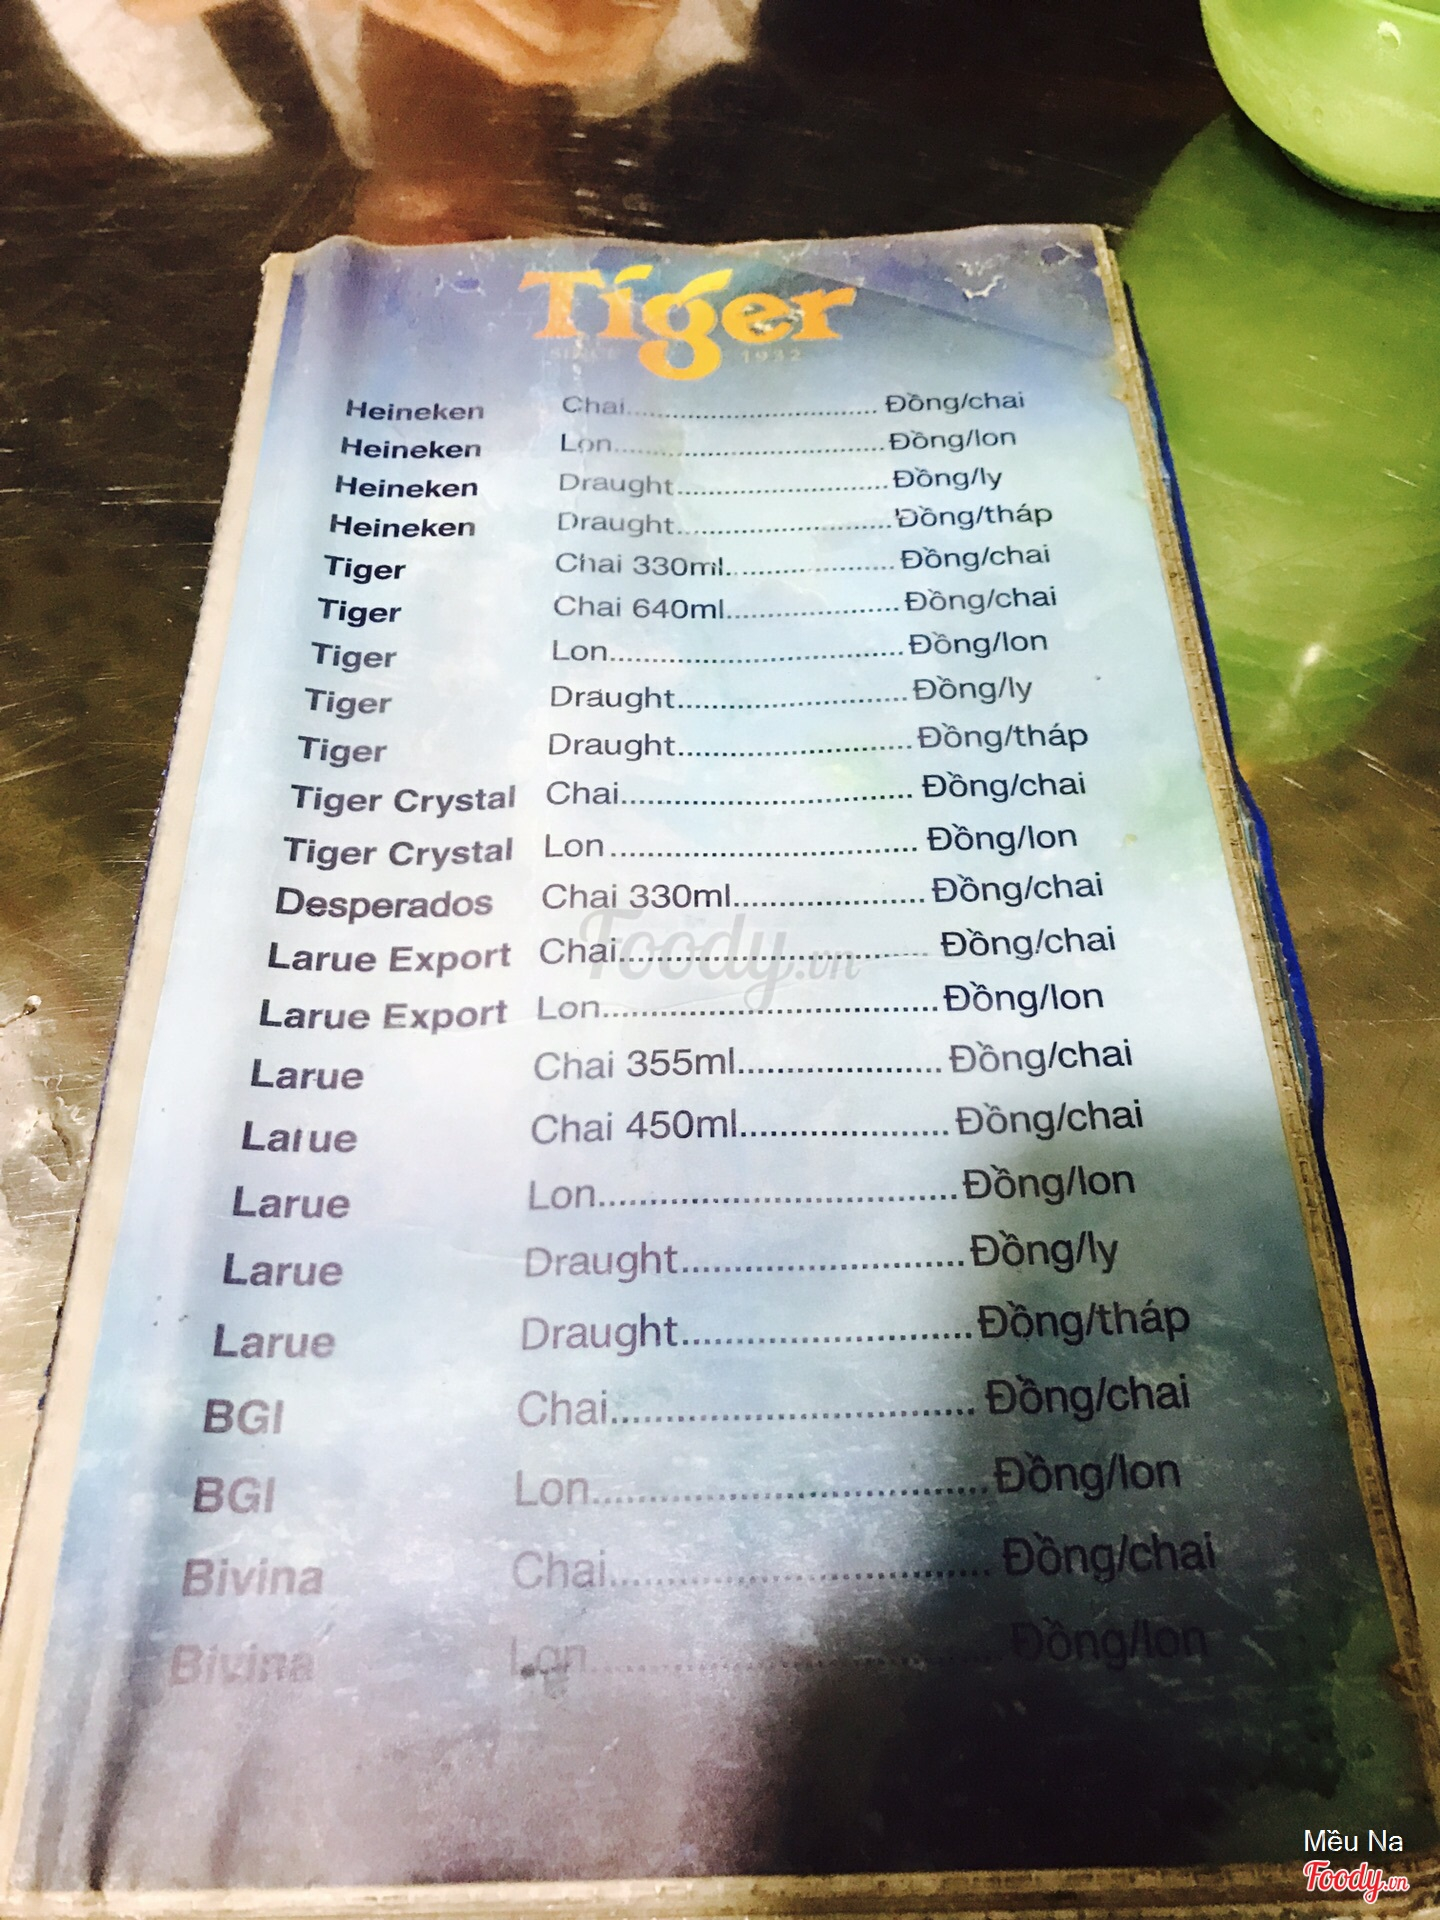 Tiger
SINCE 1932
Heineken Chai.................................. Đồng/chai
Heineken Lon....................................Đồng/lon
Heineken Draught...........................Đồng/ly
Heineken Draught...........................'Đồng/tháp
Tiger Chai 330ml.....................Đồng/chai
Tiger Chai 640ml.....................Đồng/chai
Tiger Lon...................................Đồng/lon
Tiger Draught...........................Đồng/ly
Tiger Draught...........................Đồng/tháp
Tiger Crystal Chai................................. Đồng/chai
Tiger Crystal Lon.................................. Đồng/lon
Desperados Chai 330ml..................... Đồng/chai
Larue Export Chai................................. Đồng/chai
Larue Export Lon...................................Đồng/lon
Larue Chai 355ml.....................Đồng/chai
Larue Chai 450ml.....................Đồng/chai
Larue Lon...................................Đồng/lon
Larue Draught...........................Đồng/ly
Larue Draught...........................Đồng/tháp
BGI Chai................................. Đồng/chai
BGI Lon...................................Đồng/lon
Bivina Chai................................. Đồng/chai
Bivina Lon...................................Đồng/lon
Foody.vn
Mều Na
Foody.vn